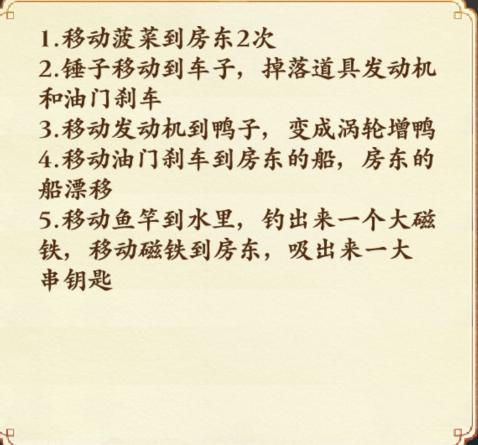 1.移动菠菜到房东2次
2.锤子移动到车子，掉落道具发动机
和油门刹车
3.移动发动机到鸭子，变成涡轮增鸭
4.移动油门刹车到房东的船，房东的
船漂移
5.移动鱼竿到水里，钓出来一个大磁
铁，移动磁铁到房东，吸出来一大
串钥匙